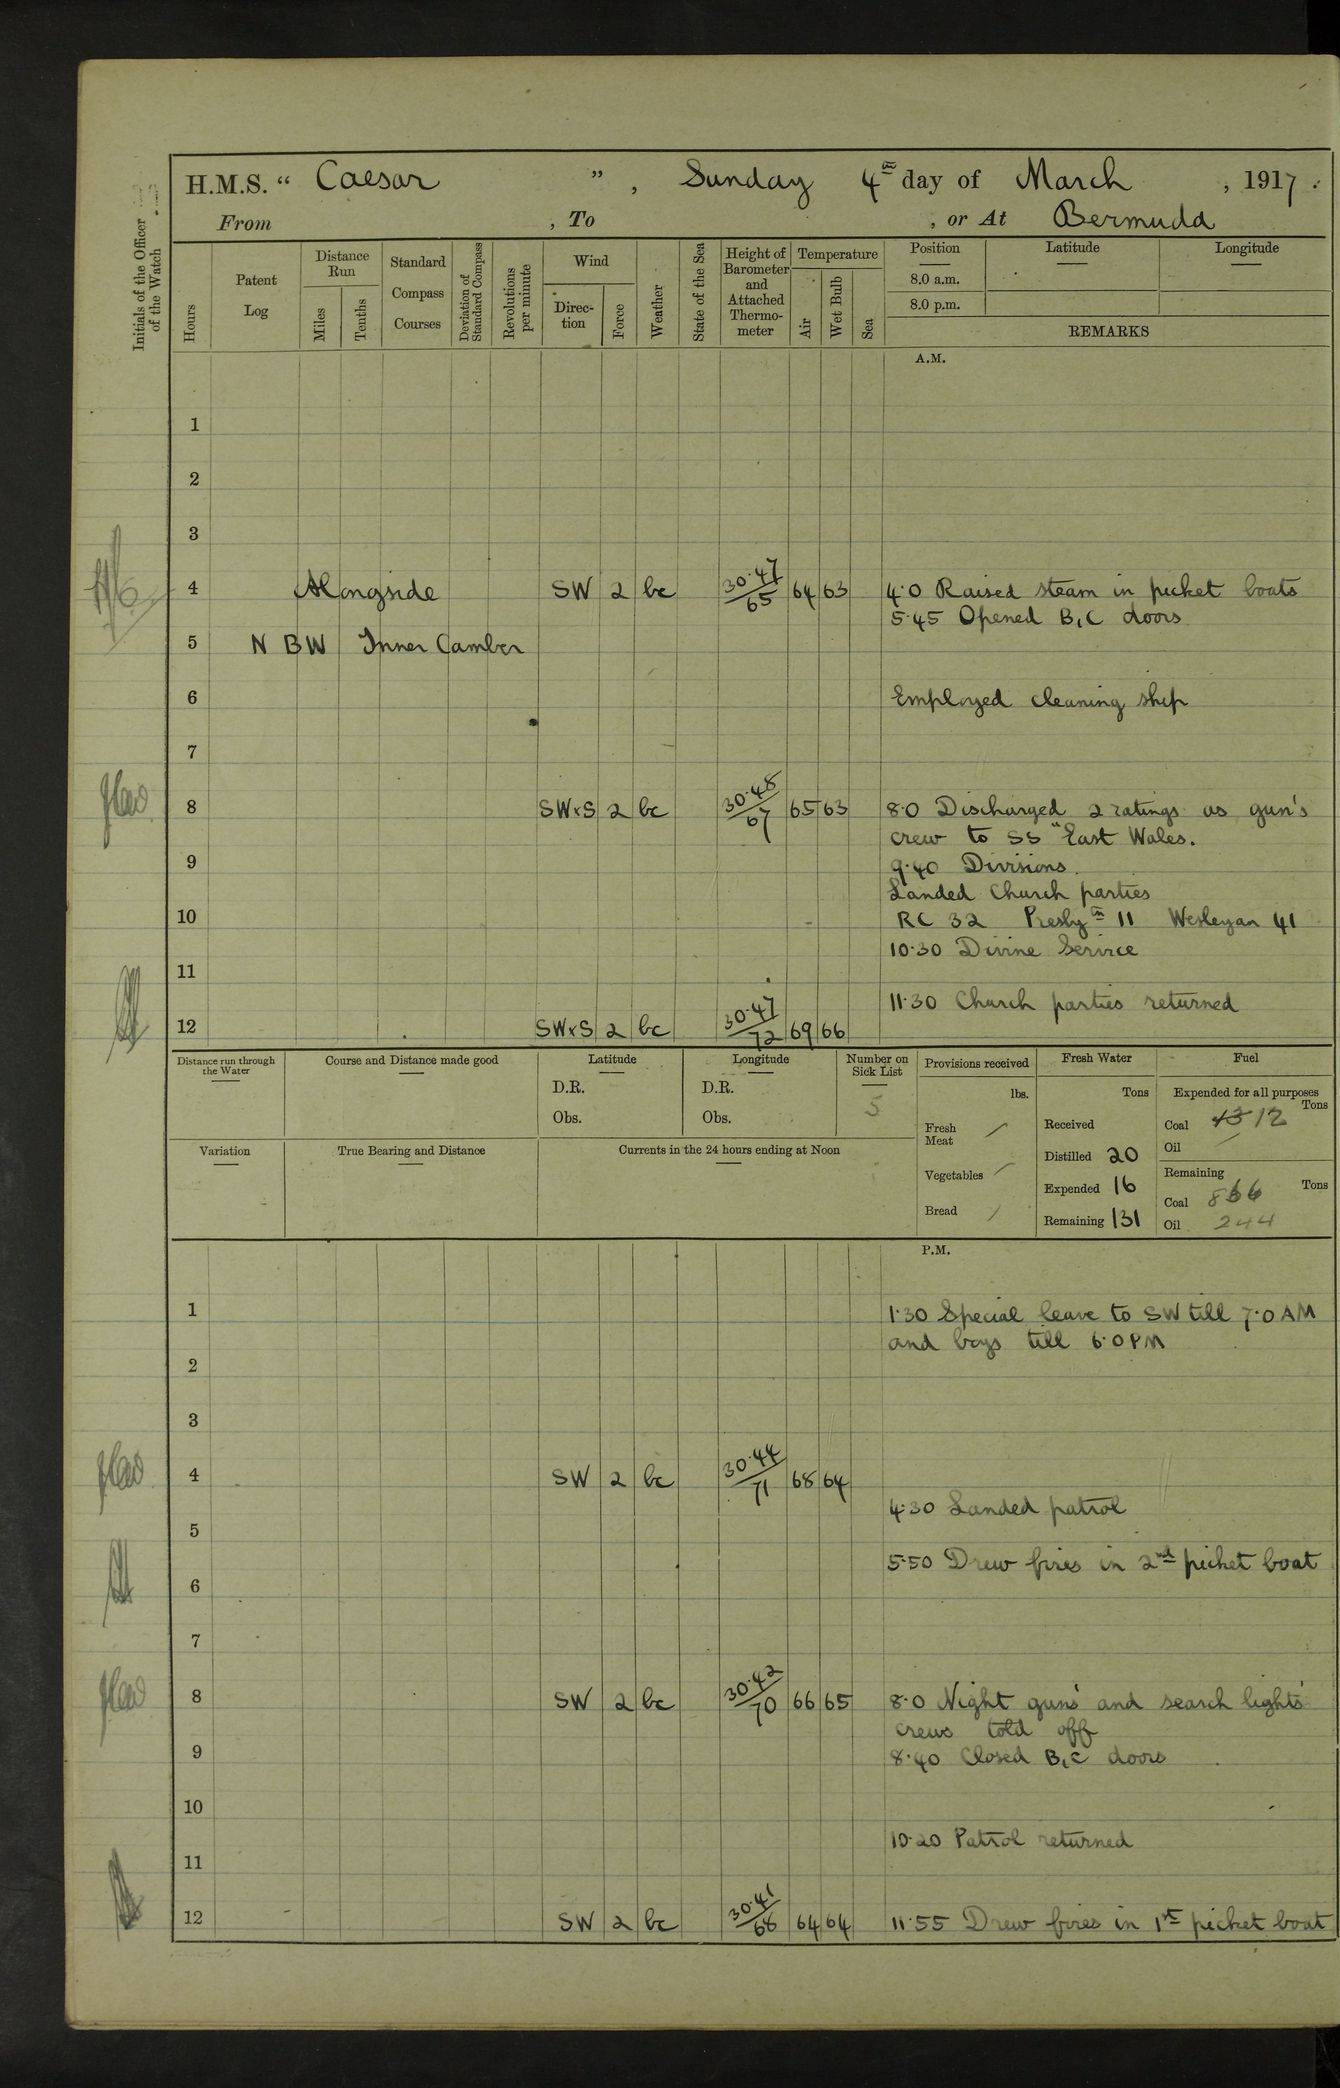 H.M.S. “ Caesar ” , Sunday 4th day of March , 1917 .
From , To , or At Bermuda
Initials of the Officer of the Watch
Hours
Patent Log
Distance Run
Miles
Tenths
Standard Compass Courses
Deviation of Standard Compass
Revolutions per minute
Wind
Direc-tion
Force
Weather
State of the Sea
Height of Barometer and Attached Thermo-meter
Temperature
Air
Wet Bulb
Sea
Position Latitude Longitude
8.0 a.m.
8.0 p.m.
REMARKS
A.M.
1
2
3
4 Alongside SW 2 bc 30.47/65 64 63 4.0 Raised steam in picket boats
5.45 Opened B,C doors
5 N BW Inner Camber
6 Employed cleaning ship
7
8 SWxS 2 bc 30.48/67 65 63 8.0 Discharged 2 ratings as gun's
crew to SS "East Wales.
9 9.40 Divisions.
Landed Church parties
10 RC 32 Presbyn 11 Wesleyan 41
10.30 Divine Service
11
11.30 Church parties returned
12 SWxS 2 bc 30.47/72 69 66
Distance run through the Water
Course and Distance made good
Latitude
D.R.
Obs.
Longitude
D.R.
Obs.
Number on Sick List
5
Provisions received
lbs.
Fresh Meat /
Vegetables /
Bread /
Fresh Water
Tons
Received
Distilled 20
Expended 16
Remaining 131
Fuel
Expended for all purposes
Tons
Coal 13 12
Oil /
Remaining
Tons
Coal 866
Oil 244
Variation
True Bearing and Distance
Currents in the 24 hours ending at Noon
P.M.
1 1.30 Special leave to SW till 7.0 AM
and boys till 6.0 PM
2
3
4 SW 2 bc 30.44/71 68 64
4.30 Landed patrol
5
5.50 Drew fires in 2nd picket boat
6
7
8 SW 2 bc 30.42/70 66 65 8.0 Night guns' and search lights'
crews told off
9 8.40 Closed B,C doors
10
10.20 Patrol returned
11
12 SW 2 bc 30.41/68 64 64 11.55 Drew fires in 1st picket boat